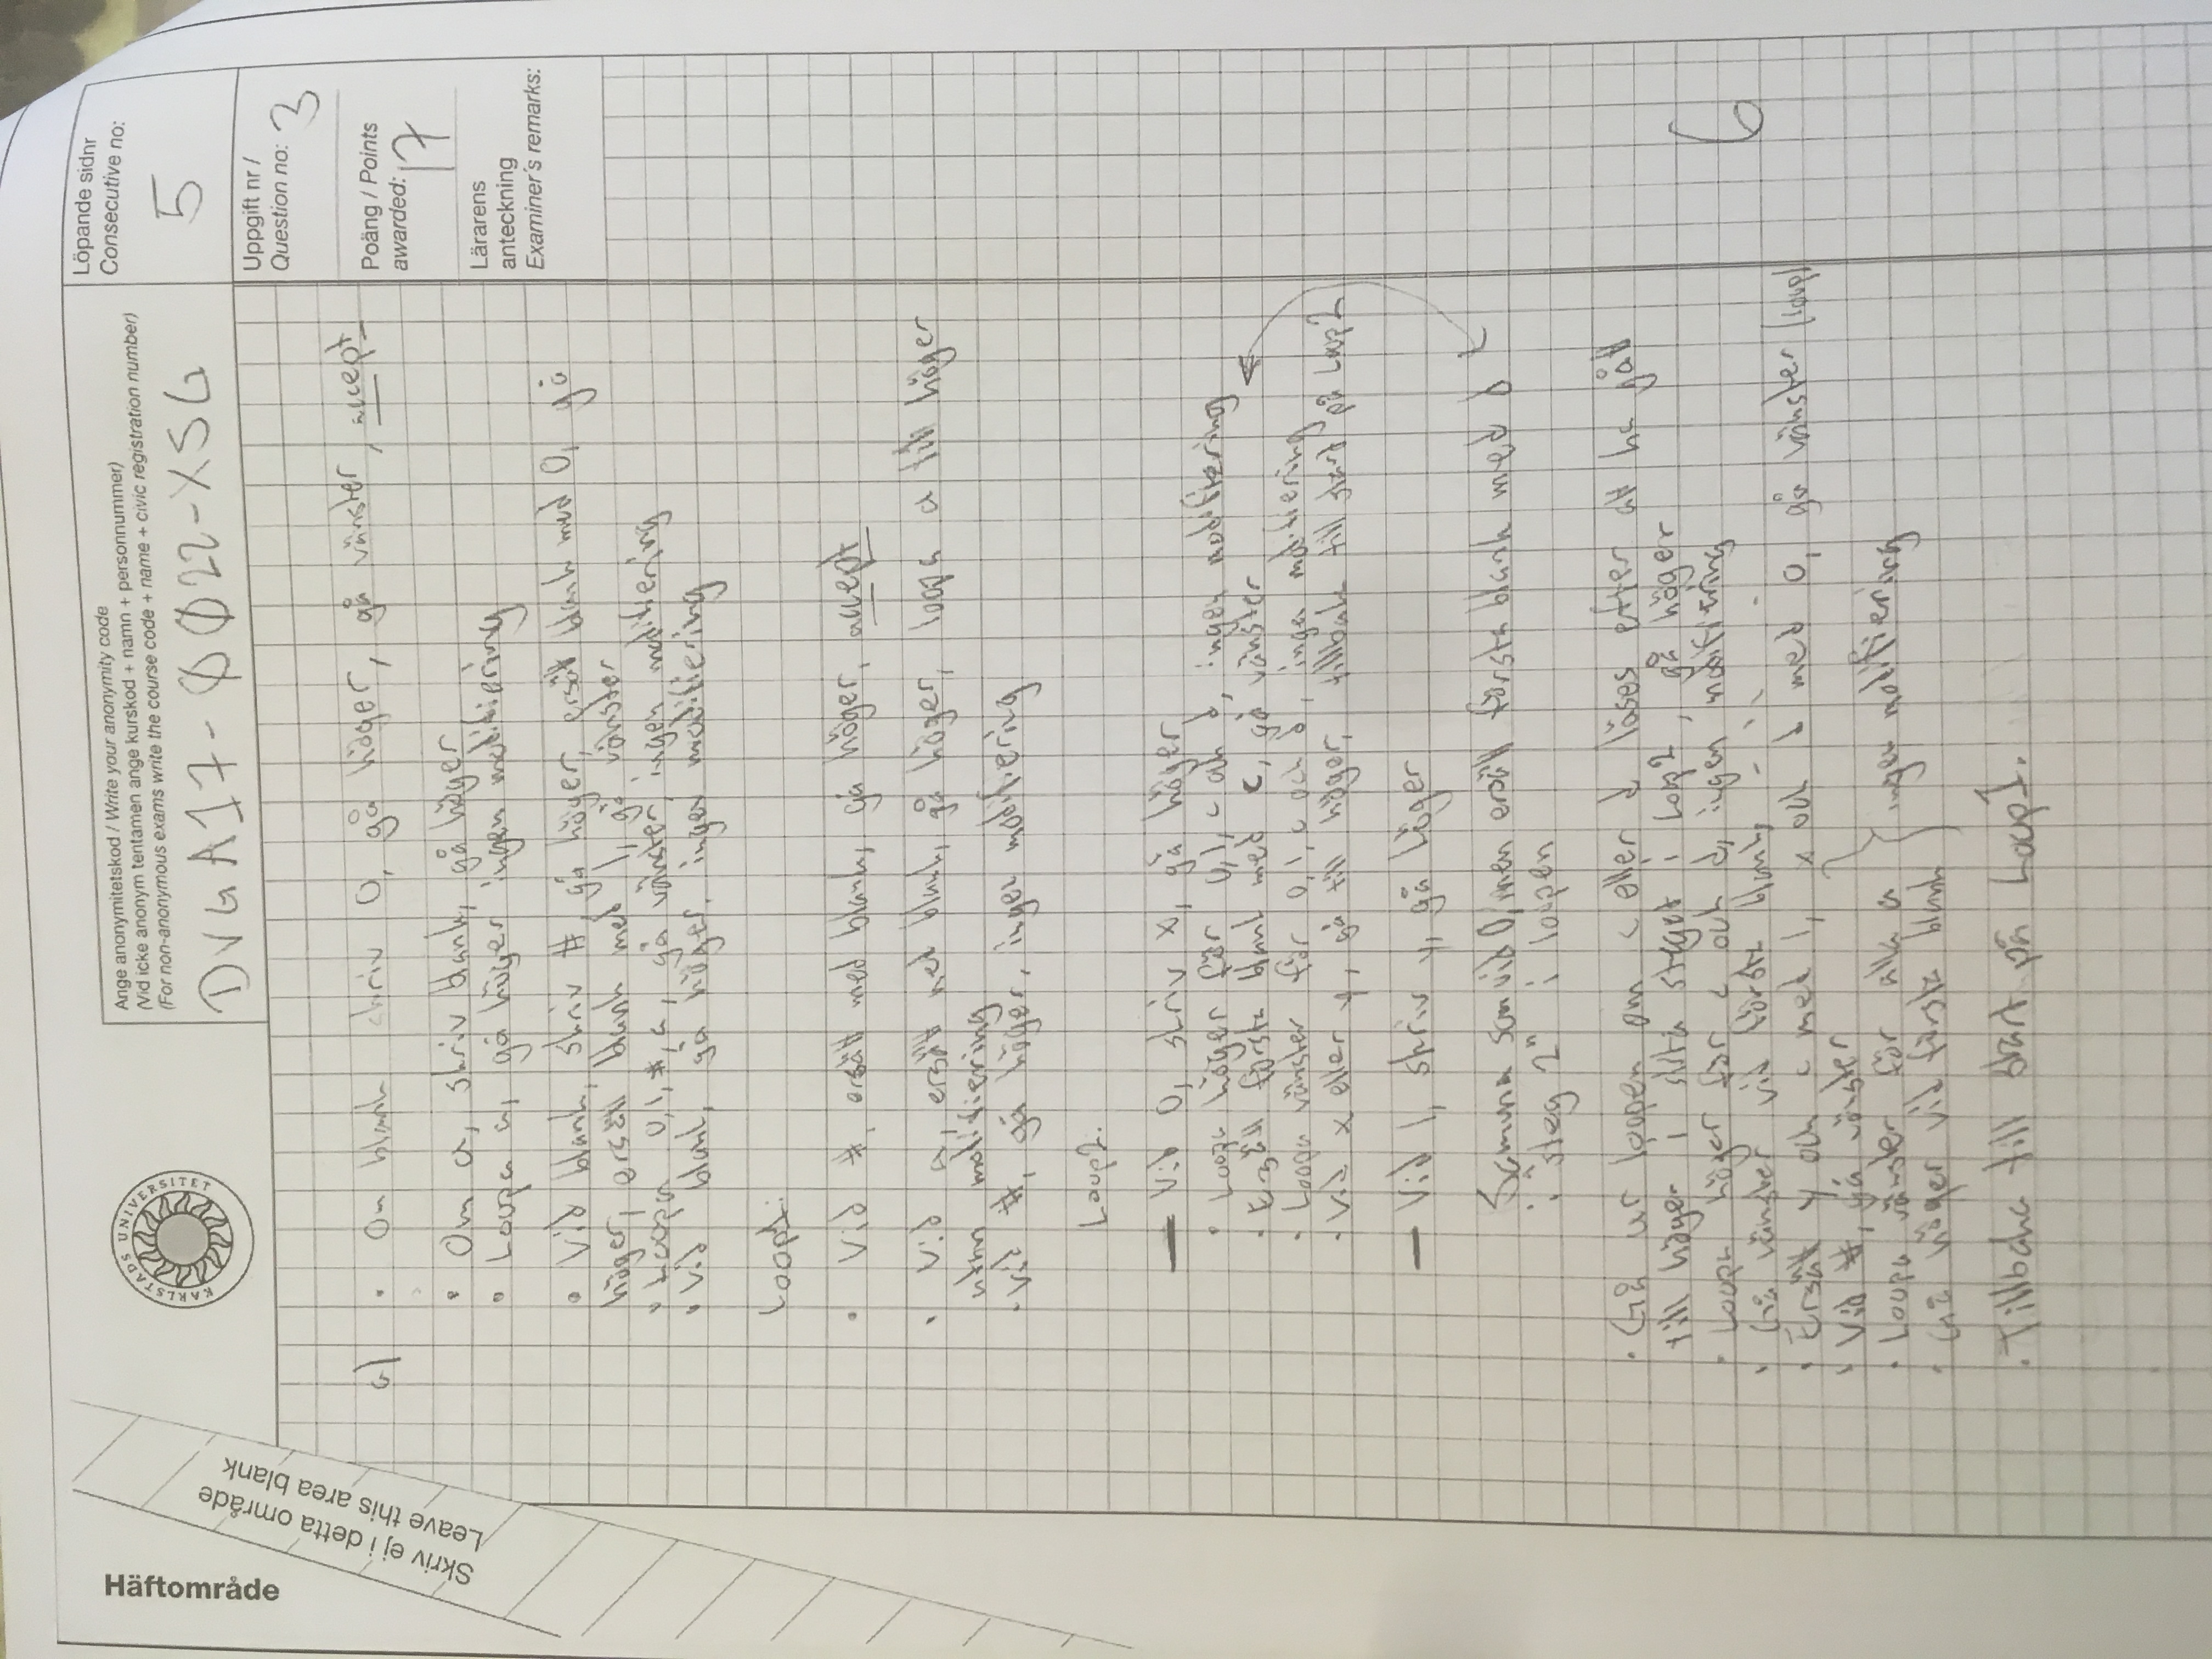 Häftområde
Skriv ej i detta område
Leave this area blank
KARLSTADS UNIVERSITET
Ange anonymitetskod / Write your anonymity code
(Vid icke anonym tentamen ange kurskod + namn + personnummer)
(For non-anonymous exams write the course code + name + civic registration number)
DVGA17-0022-XSG
Löpande sidnr
Consecutive no:
5
Uppgift nr /
Question no: 3
Poäng / Points
awarded: 17
Lärarens
anteckning
Examiner's remarks:
a) • Om blank skriv 0, gå höger, gå vänster, accept
• Om a, skriv blank, gå höger
• Loopa a, gå höger ingen modifiering
• Vid blank, skriv #, gå höger, ersätt blank med 0, gå
höger, ersätt blank med 1, gå vänster
• Loopa 0,1,#,a, gå vänster, ingen modifiering
• Vid blank, gå höger, ingen modifiering
Loop1:
• Vid #, ersätt med blank, gå höger, accept
• Vid a, ersätt med blank, gå höger, loopa a till höger
utan modifiering
• Vid #, gå höger, ingen modifiering
Loop2:
— Vid 0, skriv x, gå höger
• Loopa höger för 0,1, c och d, ingen modifiering
• Ersätt första blank med c, gå vänster
• Loopa vänster för 0,1,c och d, ingen modifiering
• Vid x eller y, gå till höger, tillbaka till start på Loop2
— Vid 1, skriv y, gå höger
Samma som vid 0, men ersätt första blank med d
i "steg 2" i loopen
• Gå ur loopen om c eller d läses efter att ha gått
till höger i sista steget i Loop2, gå höger
• Loopa höger för c och d, ingen modifiering
• Gå vänster vid första blank, - " -
• Ersätt y och c med 1, x och d med 0, gå vänster (loop)
• Vid #, gå vänster
• Loopa vänster för alla a
ingen modifiering
• Gå höger vid första blank
• Tillbaka till start på Loop1.
6